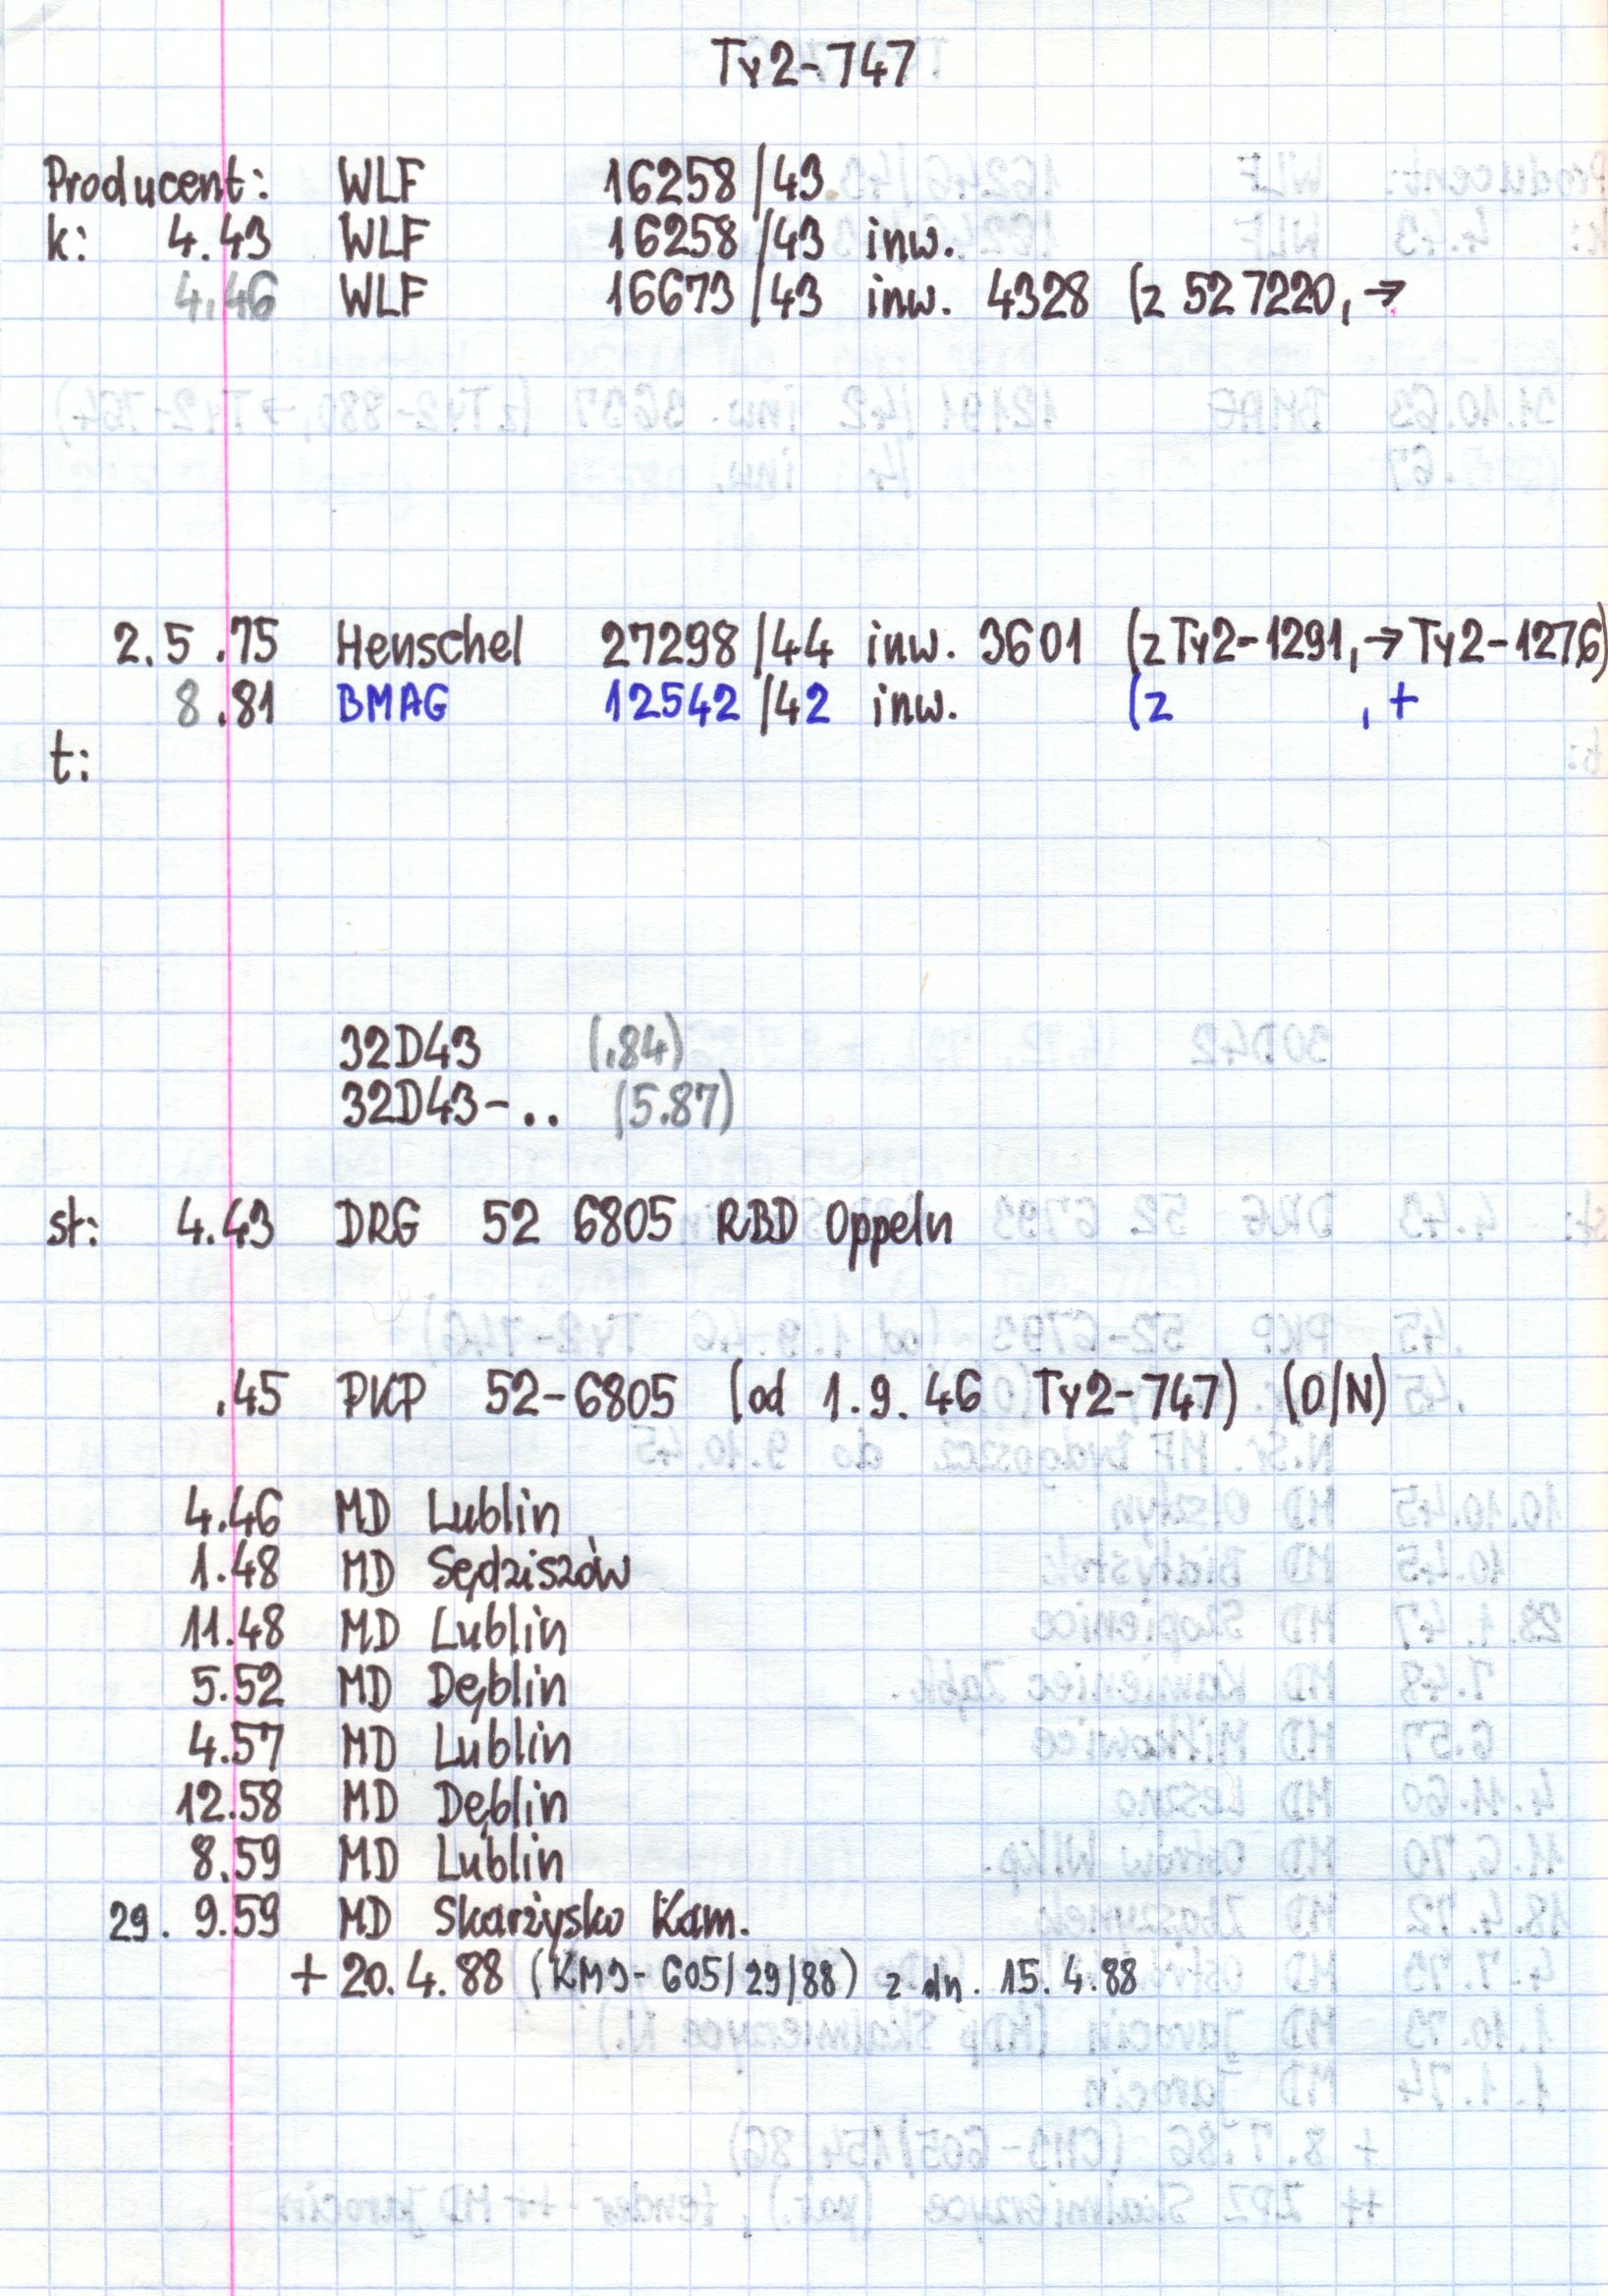 Ty2-747
Producent: WLF 16258/43
k: 4.43 WLF 16258/43 inw.
4.46 WLF 16673/43 inw. 4328 (z 52 7220, →
2.5.75 Henschel 27298/44 inw. 3601 (z Ty2-1291, → Ty2-1276)
8.81 BMAG 12542/42 inw. (z , +
t:
32D43 (.84)
32D43-.. (5.87)
st: 4.43 DRG 52 6805 RBD Oppeln
.45 PKP 52-6805 (od 1.9.46 Ty2-747) (O/N)
4.46 MD Lublin
1.48 MD Sędziszów
11.48 MD Lublin
5.52 MD Dęblin
4.57 MD Lublin
12.58 MD Dęblin
8.59 MD Lublin
29. 9.59 MD Skarżysko Kam.
+ 20.4.88 (KM9-605/29/88) z dn. 15.4.88